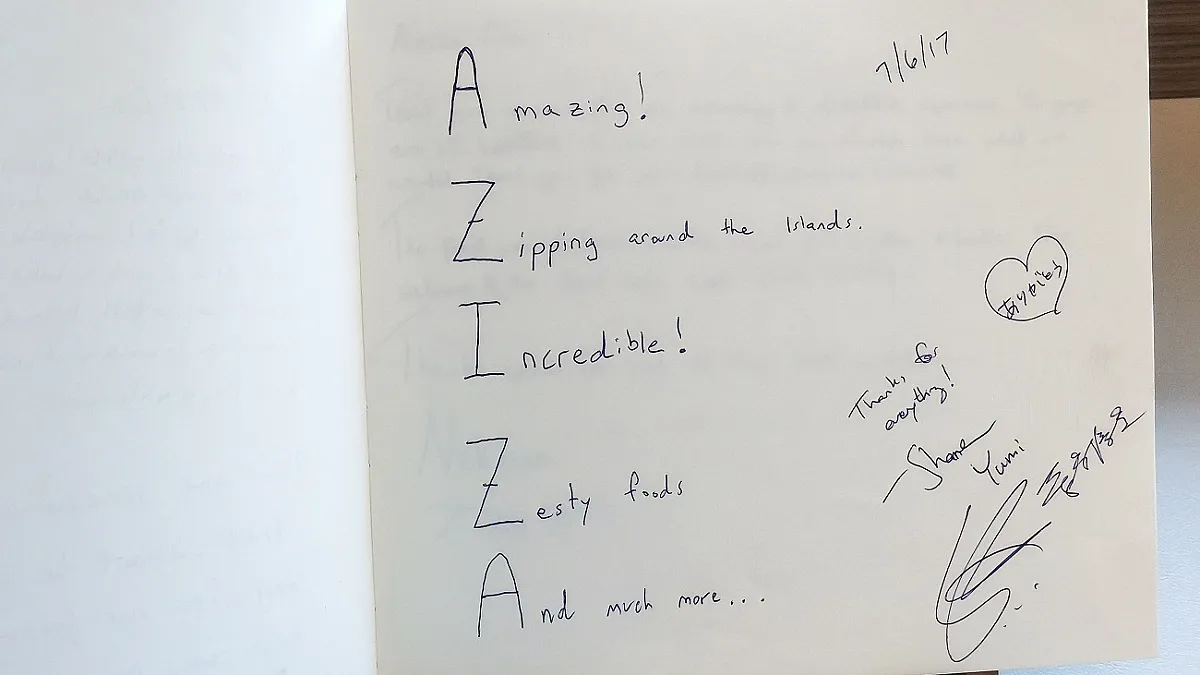 7/6/17
Amazing!
Zipping around the Islands.
Incredible!
Zesty foods
And much more...
ありがとう
Thanks for
everything!
Shane
Yumi